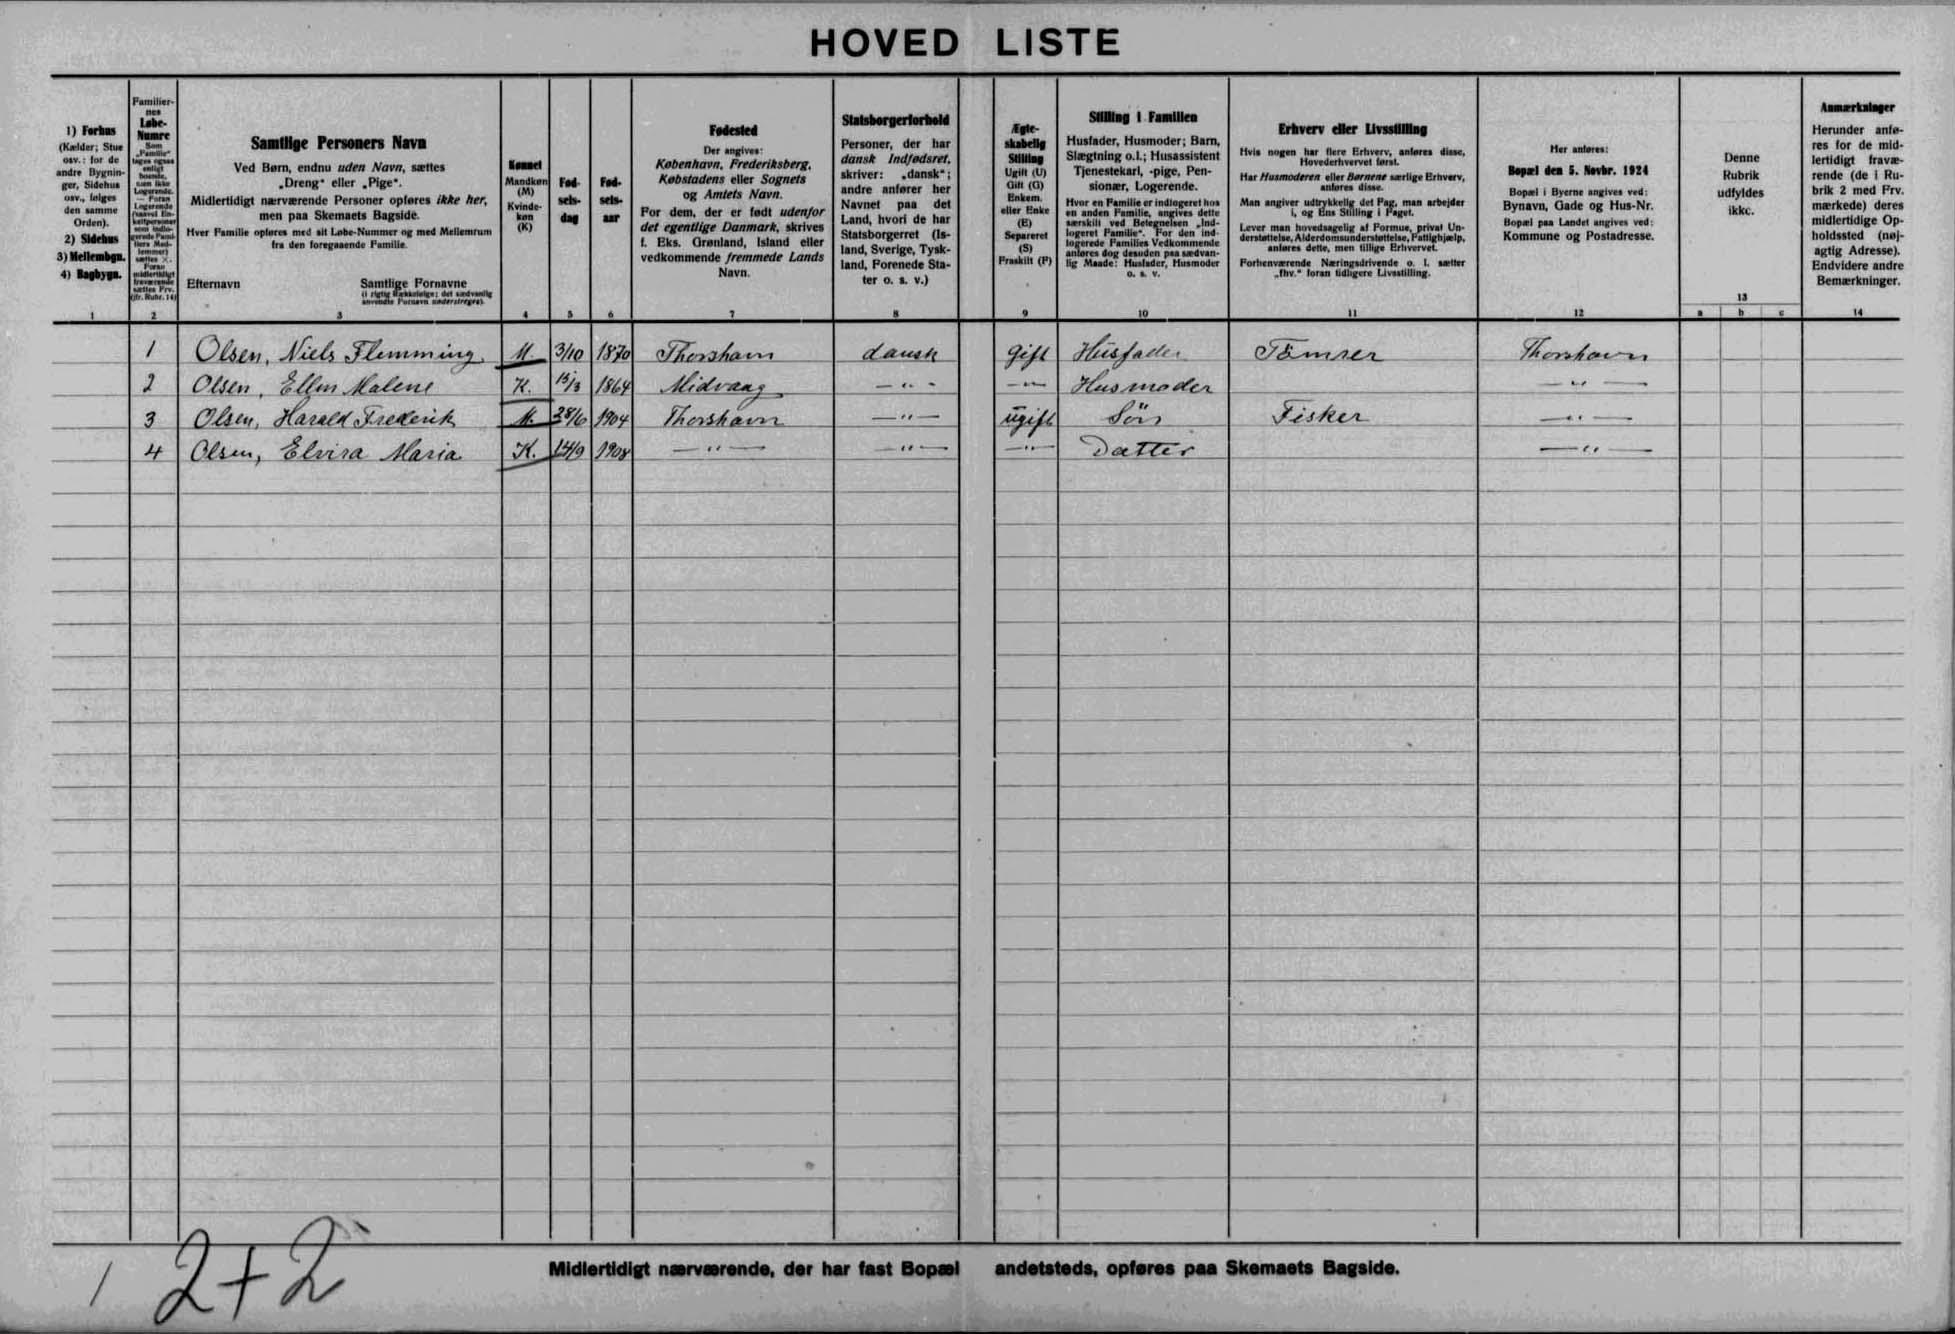 HOVED LISTE
1) Forhus
(Kælder; Stue
osv.: for de
andre Bygnin-
ger, Sidehus
osv., følges
den samme
Orden).
2) Sidehus
3) Mellembgn.
4) Bagbygn.
1
Familier-
nes
Løbe-
Numre
Som
„Familie"
tages ogsaa
enligt
boende,
som ikke
Logerende.
— Foran
Logerende
(saavel En-
keltpersoner
som indlo-
gerede Fami-
liers Med-
lemmer)
sættes ×.
Foran
midlertidigt
fraværende
sættes Frv.
(jfr. Rubr. 14)
2
Samtlige Personers Navn
Ved Børn, endnu uden Navn, sættes
„Dreng" eller „Pige".
Midlertidigt nærværende Personer opføres ikke her,
men paa Skemaets Bagside.
Hver Familie opføres med sit Løbe-Nummer og med Mellemrum
fra den foregaaende Familie.
Efternavn Samtlige Fornavne
(i rigtig Rækkefølge; det sædvanlig
anvendte Fornavn understreges).
3
Kønnet
Mandkøn
(M)
Kvinde-
køn
(K)
4
Fød-
sels-
dag
5
Fød-
sels-
aar
6
Fødested
Der angives:
København, Frederiksberg,
Købstadens eller Sognets
og Amtets Navn.
For dem, der er født udenfor
det egentlige Danmark, skrives
f. Eks. Grønland, Island eller
vedkommende fremmede Lands
Navn.
7
Statsborgerforhold
Personer, der har
dansk Indfødsret,
skriver: „dansk";
andre anfører her
Navnet paa det
Land, hvori de har
Statsborgerret (Is-
land, Sverige, Tysk-
land, Forenede Sta-
ter o. s. v.)
8
Ægte-
skabelig
Stilling
Ugift (U)
Gift (G)
Enkem.
eller Enke
(E)
Separeret
(S)
Fraskilt (F)
9
Stilling i Familien
Husfader, Husmoder; Barn,
Slægtning o.l.; Husassistent
Tjenestekarl, -pige, Pen-
sionær, Logerende.
Hvor en Familie er indlogeret hos
en anden Familie, angives dette
særskilt ved Betegnelsen „Ind-
logeret Familie". For den ind-
logerede Families Vedkommende
anføres dog desuden paa sædvan-
lig Maade: Husfader, Husmoder
o. s. v.
10
Erhverv eller Livsstilling
Hvis nogen har flere Erhverv, anføres disse,
Hovederhvervet først.
Har Husmoderen eller Børnene særlige Erhverv,
anføres disse.
Man angiver udtrykkelig det Fag, man arbejder
i, og Ens Stilling i Faget.
Lever man hovedsagelig af Formue, privat Un-
derstøttelse, Alderdomsunderstøttelse, Fattighjælp,
anføres dette, men tillige Erhvervet.
Forhenværende Næringsdrivende o. l. sætter
„fhv." foran tidligere Livsstilling.
11
Her anføres:
Bopæl den 5. Novbr. 1924
Bopæl i Byerne angives ved:
Bynavn, Gade og Hus-Nr.
Bopæl paa Landet angives ved:
Kommune og Postadresse.
12
Denne
Rubrik
udfyldes
ikke.
13
a b c
Anmærkninger
Herunder anfø-
res for de mid-
lertidigt fravæ-
rende (de i Ru-
brik 2 med Frv.
mærkede) deres
midlertidige Op-
holdssted (nøj-
agtig Adresse).
Endvidere andre
Bemærkninger.
14
1 Olsen, Niels Flemming M. 3/10 1870 Thorshavn dansk gift Husfader Tømrer Thorshavn
2 Olsen, Ellen Malene K. 1864 Midvaag —"— —"— Husmoder —"—
3 Olsen, Harald Frederik M. 28/6 1904 Thorshavn —"— ugift Søn Fisker —"—
4 Olsen, Elvira Maria K. 14/9 1908 —"— —"— —"— Datter —"—
Midlertidigt nærværende, der har fast Bopæl andetsteds, opføres paa Skemaets Bagside.
1 2+2